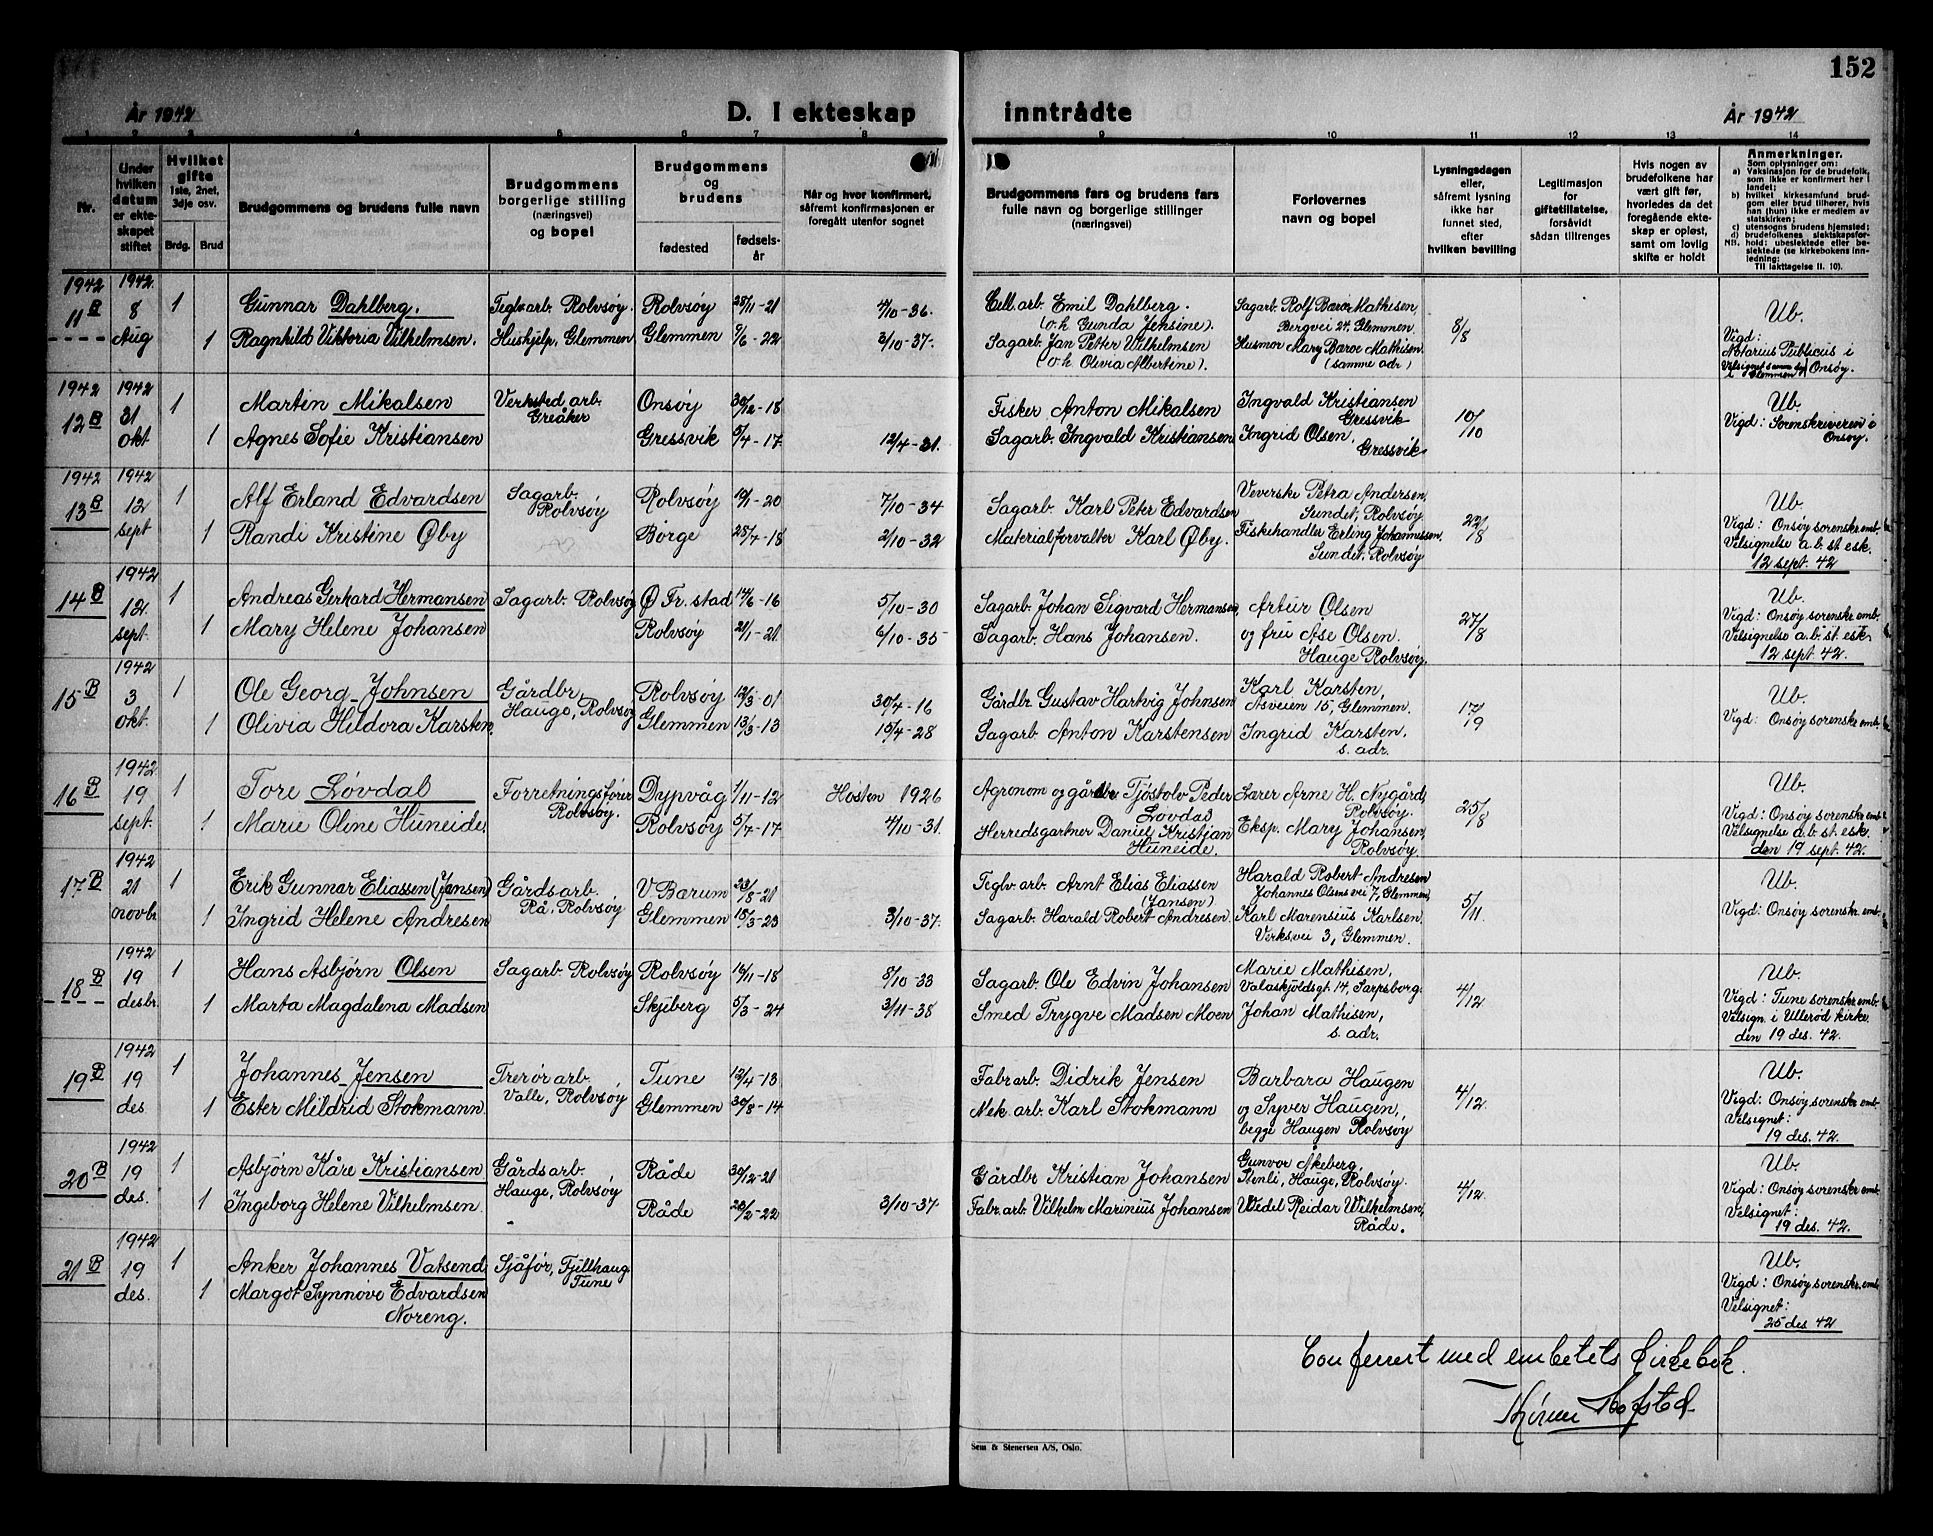 152
År 1942
D. I ekteskap inntrådte
År 1942
1 2 3 4 5 6 7 8 9 10 11 12 13 14
Nr.
Under hvilken datum er ekteskapet stiftet
Hvilket gifte 1ste, 2net, 3dje osv.
Brdg. Brud
Brudgommens og brudens fulle navn
Brudgommens borgerlige stilling (næringsvei) og bopel
Brudgommens og brudens
fødested
fødselsår
Når og hvor konfirmert, såfremt konfirmasjonen er foregått utenfor sognet
Brudgommens fars og brudens fars fulle navn og borgerlige stillinger (næringsvei)
Forlovernes navn og bopel
Lysningsdagen eller, såfremt lysning ikke har funnet sted, efter hvilken bevilling
Legitimasjon for giftetillatelse, forsåvidt sådan tiltrenges
Hvis nogen av brudefolkene har vært gift før, hvorledes da det foregående ekteskap er opløst, samt om lovlig skifte er holdt
Anmerkninger.
Som oplysninger om:
a) Vaksinasjon for de brudefolk, som ikke er konfirmert her i landet;
b) hvilket kirkesamfund brudgom eller brud tilhører, hvis han (hun) ikke er medlem av statskirken;
c) utensogns brudens hjemsted;
d) brudefolkenes slektskapsforhold: ubeslektede eller beslektede (se kirkebokens innledning:
NB.
Til iakttagelse II. 10).
1942 1942
11 B 8 Aug 1 Gunnar Dahlberg. Teglv.arb. Rolvsøy. Rolvsøy 28/11-21 4/10-36. Cell.arb. Emil Dahlberg. (o.h. Gunda Jensine). Sagarb. Rolf Bæroe Mathisen, Bergvei 24, Glemmen. 8/8 Ub.
1 Ragnhild Viktoria Vilhelmsen. Hushjelp, Glemmen Glemmen 9/6-22 3/10-37. Sagarb. Jan Petter Wilhelmsen (o.h. Olivia Albertine). Husmor Mary Bæroe Mathisen. (samme adr) Vigd: Notarius Publicus i Onsøy. Velsignet samme dag i Glemmen
1942 1942
12 B 31 okt 1 Martin Mikalsen Verksted arb. Greåker Onsøy 30/12-18 Fisker Anton Mikalsen Ingvald Kristiansen Gressvik 10/10 Ub.
1 Agnes Sofie Kristiansen Gressvik 5/4-17 12/4-31. Sagarb. Ingvald Kristiansen Ingrid Olsen, Gressvik Vigd: Sorenskriveren i Onsøy.
1942 1942
13 B 12 sept 1 Alf Erland Edvardsen Sagarb. Rolvsøy Rolvsøy 19/1-20 7/10-34 Sagarb. Karl Peter Edvardsen Veverske Petra Andersen, Sundet, Rolvsøy 22/8 Ub.
1 Randi Kristine Øby Borge 28/4-18 2/10-32 Materialforvalter Karl Øby. Fiskehandler Erling Johannessen, Sundet, Rolvsøy Vigd: Onsøy sorenskr.emb. Velsignelse a.b. st. esk. 12 sept. 42
1942
14 B 12 sept. 1 Andreas Gerhard Hermansen Sagarb. Rolvsøy Ø Fr.stad 14/6-16 5/10-30 Sagarb. Johan Sigvard Hermansen, Artur Olsen 27/8 Ub.
1 Mary Helene Johansen Rolvsøy 21/1-21 6/10-35 Sagarb. Hans Johansen. og fru Åse Olsen. Hauge Rolvsøy. Vigd: Onsøy sorenskr.emb. Velsignelse a.b. st. esk. 12 sept. 42.
1942
15 B 3 okt. 1 Ole Georg Johnsen Gårdbr. Hauge, Rolvsøy Rolvsøy 12/3-01 30/4-16 Gårdbr. Gustav Hartvig Johnsen Karl Karsten, Åsveien 15, Glemmen. 17/9 Ub.
1 Olivia Hildora Karsten, Glemmen 13/3-13 15/4-28 Sagarb. Anton Karstensen Ingrid Karsten. s. adr. Vigd: Onsøy sorenskr.emb.
1942
16 B 19 sept. 1 Tore Løvdal Forretningsfører Rolvsøy. Dypvåg 1/11-12 Høsten 1926 Agronom og gårdbr Tjøstolv Peder Løvdal Lærer Arne H. Nygård, Rolvsøy. 25/8 Ub.
1 Marie Oline Huneide. Rolvsøy 5/7-17 4/10-31. Herredsgartner Daniel Kristjan Huneide. Eksp. Mary Johansen, Rolvsøy. Vigd: Onsøy sorenskr.emb. Velsignelse a.b. st. esk. den 19 sept. 42.
1942
17 B 21 novbr 1 Erik Gunnar Eliassen (Jansen) Gårdsarb. Rå, Rolvsøy V Bærum 23/8-21 Teglv.arb. Arnt Elias Eliassen (Jansen) Harald Robert Andresen Johannes Olsensvei 7, Glemmen, 5/11. Ub.
1 Ingrid Helene Andresen Glemmen 18/3-23 3/10-37. Sagarb. Harald Robert Andresen. Karl Marensius Karlsen. Verksvei 3, Glemmen. Vigd: Onsøy sorenskr.emb.
1942
18 B 19 desbr. 1 Hans Asbjørn Olsen Sagarb. Rolvsøy Rolvsøy 16/11-18 8/10-33 Sagarb. Ole Edvin Johansen Marie Mathisen, Valaskjoldsgt. 14, Sarpsborg. 4/12 Ub.
1 Marta Magdalena Madsen Skjeberg 5/3-24 3/11-38 Smed Trygve Madsen Moen Johan Mathisen, s. adr. Vigd: Tune sorenskr.emb. Velsign. i Ullerød kirke. den 19 des. 42.
1942
19 B 19 des 1 Johannes Jensen Trerørarb. Valle, Rolvsøy Tune 12/4-13 Fabr.arb. Didrik Jensen Barbara Haugen 4/12. Ub.
1 Ester Mildrid Stokmann. Glemmen 30/8-14 Mek. arb. Karl Stokmann og Syver Haugen, begge Haugen Rolvsøy Vigd: Onsøy sorenskr.emb. Velsignet: 19 des. 42.
1942
20 B 19 des. 1 Asbjørn Kåre Kristiansen Gårdsarb. Hauge, Rolvsøy Råde 30/12-21 Gårdbr. Kristian Johansen Gunvor Åkeberg, Stenli, Hauge, Rolvsøy. 4/12. Ub.
1 Ingeborg Helene Vilhelmsen. Råde 23/2-22 3/10-37. Fabr.arb. Vilhelm Marinius Johansen Wedel Reidar Wilhelmsen, Råde. Vigd: Onsøy sorenskr.emb. Velsignet: 19 des. 42.
1942
21 B 19 des. 1 Anker Johannes Vatsend Sjåfør, Fjellhaug Tune Ub.
1 Margot Synnøve Edvardsen Noreng. Vigd: Onsøy sorenskr.emb. Velsignet: 25 des 42
Conferert med embetets kirkebok.
Sem & Stenersen A/S, Oslo.